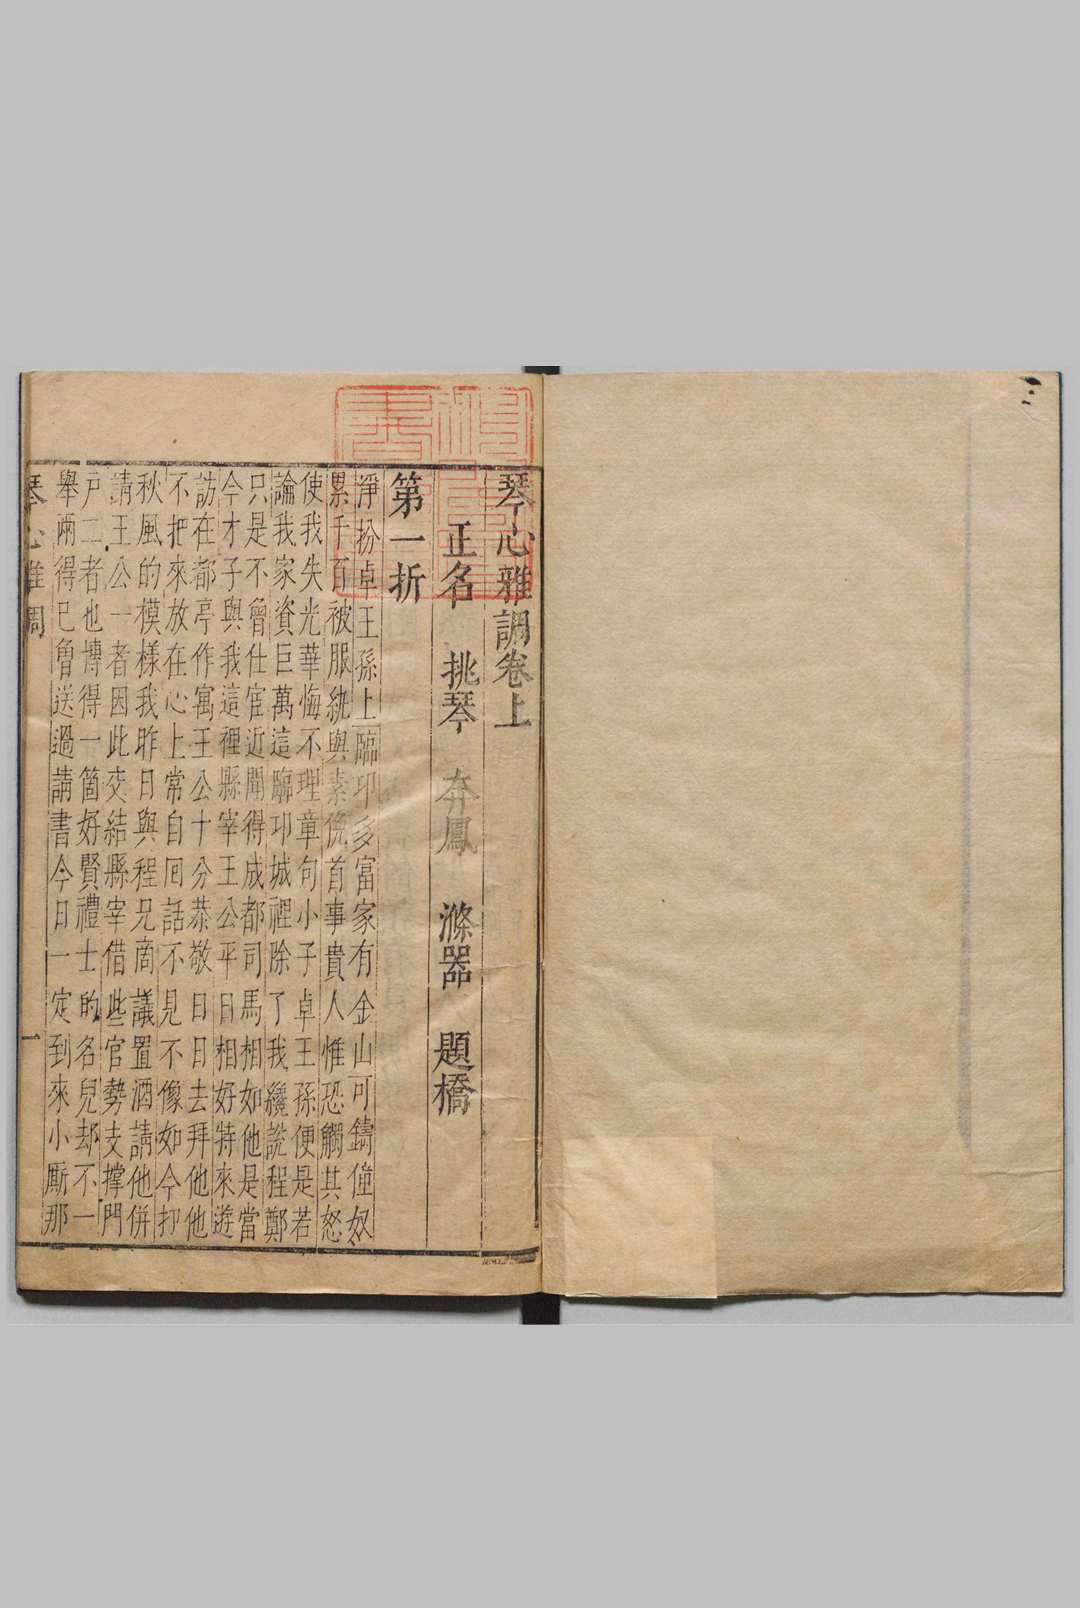 三
琴心雅調卷上
正名 挑琴 奔鳳 滌器 題橋
第一折
淨扮卓王孫上臨邛多富家有金山可鑄僮奴
累千百被服紈與素俛首事貴人惟恐觸其怒
使我失光華悔不理章句小子卓王孫便是若
論我家資巨萬這臨邛城裡除了我纔說程鄭
只是不曾仕宦近聞得成都司馬相如他是當
今才子與我這裡縣宰王公平日相好特來遊
訪在都亭作寓王公十分恭敬日日去拜他他
不把來放在心上常自囘話不見不像如今抑
秋風的模樣我昨日與程兄商議置酒請他併
請王公一者因此交結縣宰借些官勢支撐門
戶二者也博得一箇好賢禮士的名兒却不一
舉兩得已曾送過請書今日一定到來小厮那
琴心雅調
一